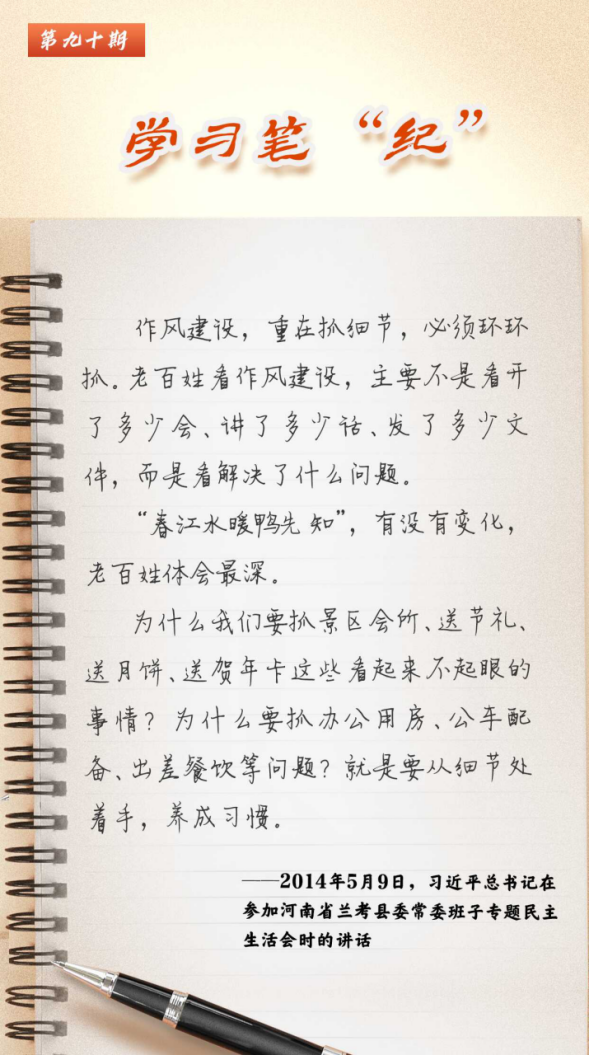 第九十期
学习笔“纪”
作风建设，重在抓细节，必须环环
抓。老百姓看作风建设，主要不是看开
了多少会、讲了多少话、发了多少文
件，而是看解决了什么问题。
“春江水暖鸭先知”，有没有变化，
老百姓体会最深。
为什么我们要抓景区会所、送节礼、
送月饼、送贺年卡这些看起来不起眼的
事情？为什么要抓办公用房、公车配
备、出差餐饮等问题？就是要从细节处
着手，养成习惯。
——2014年5月9日，习近平总书记在
参加河南省兰考县委常委班子专题民主
生活会时的讲话